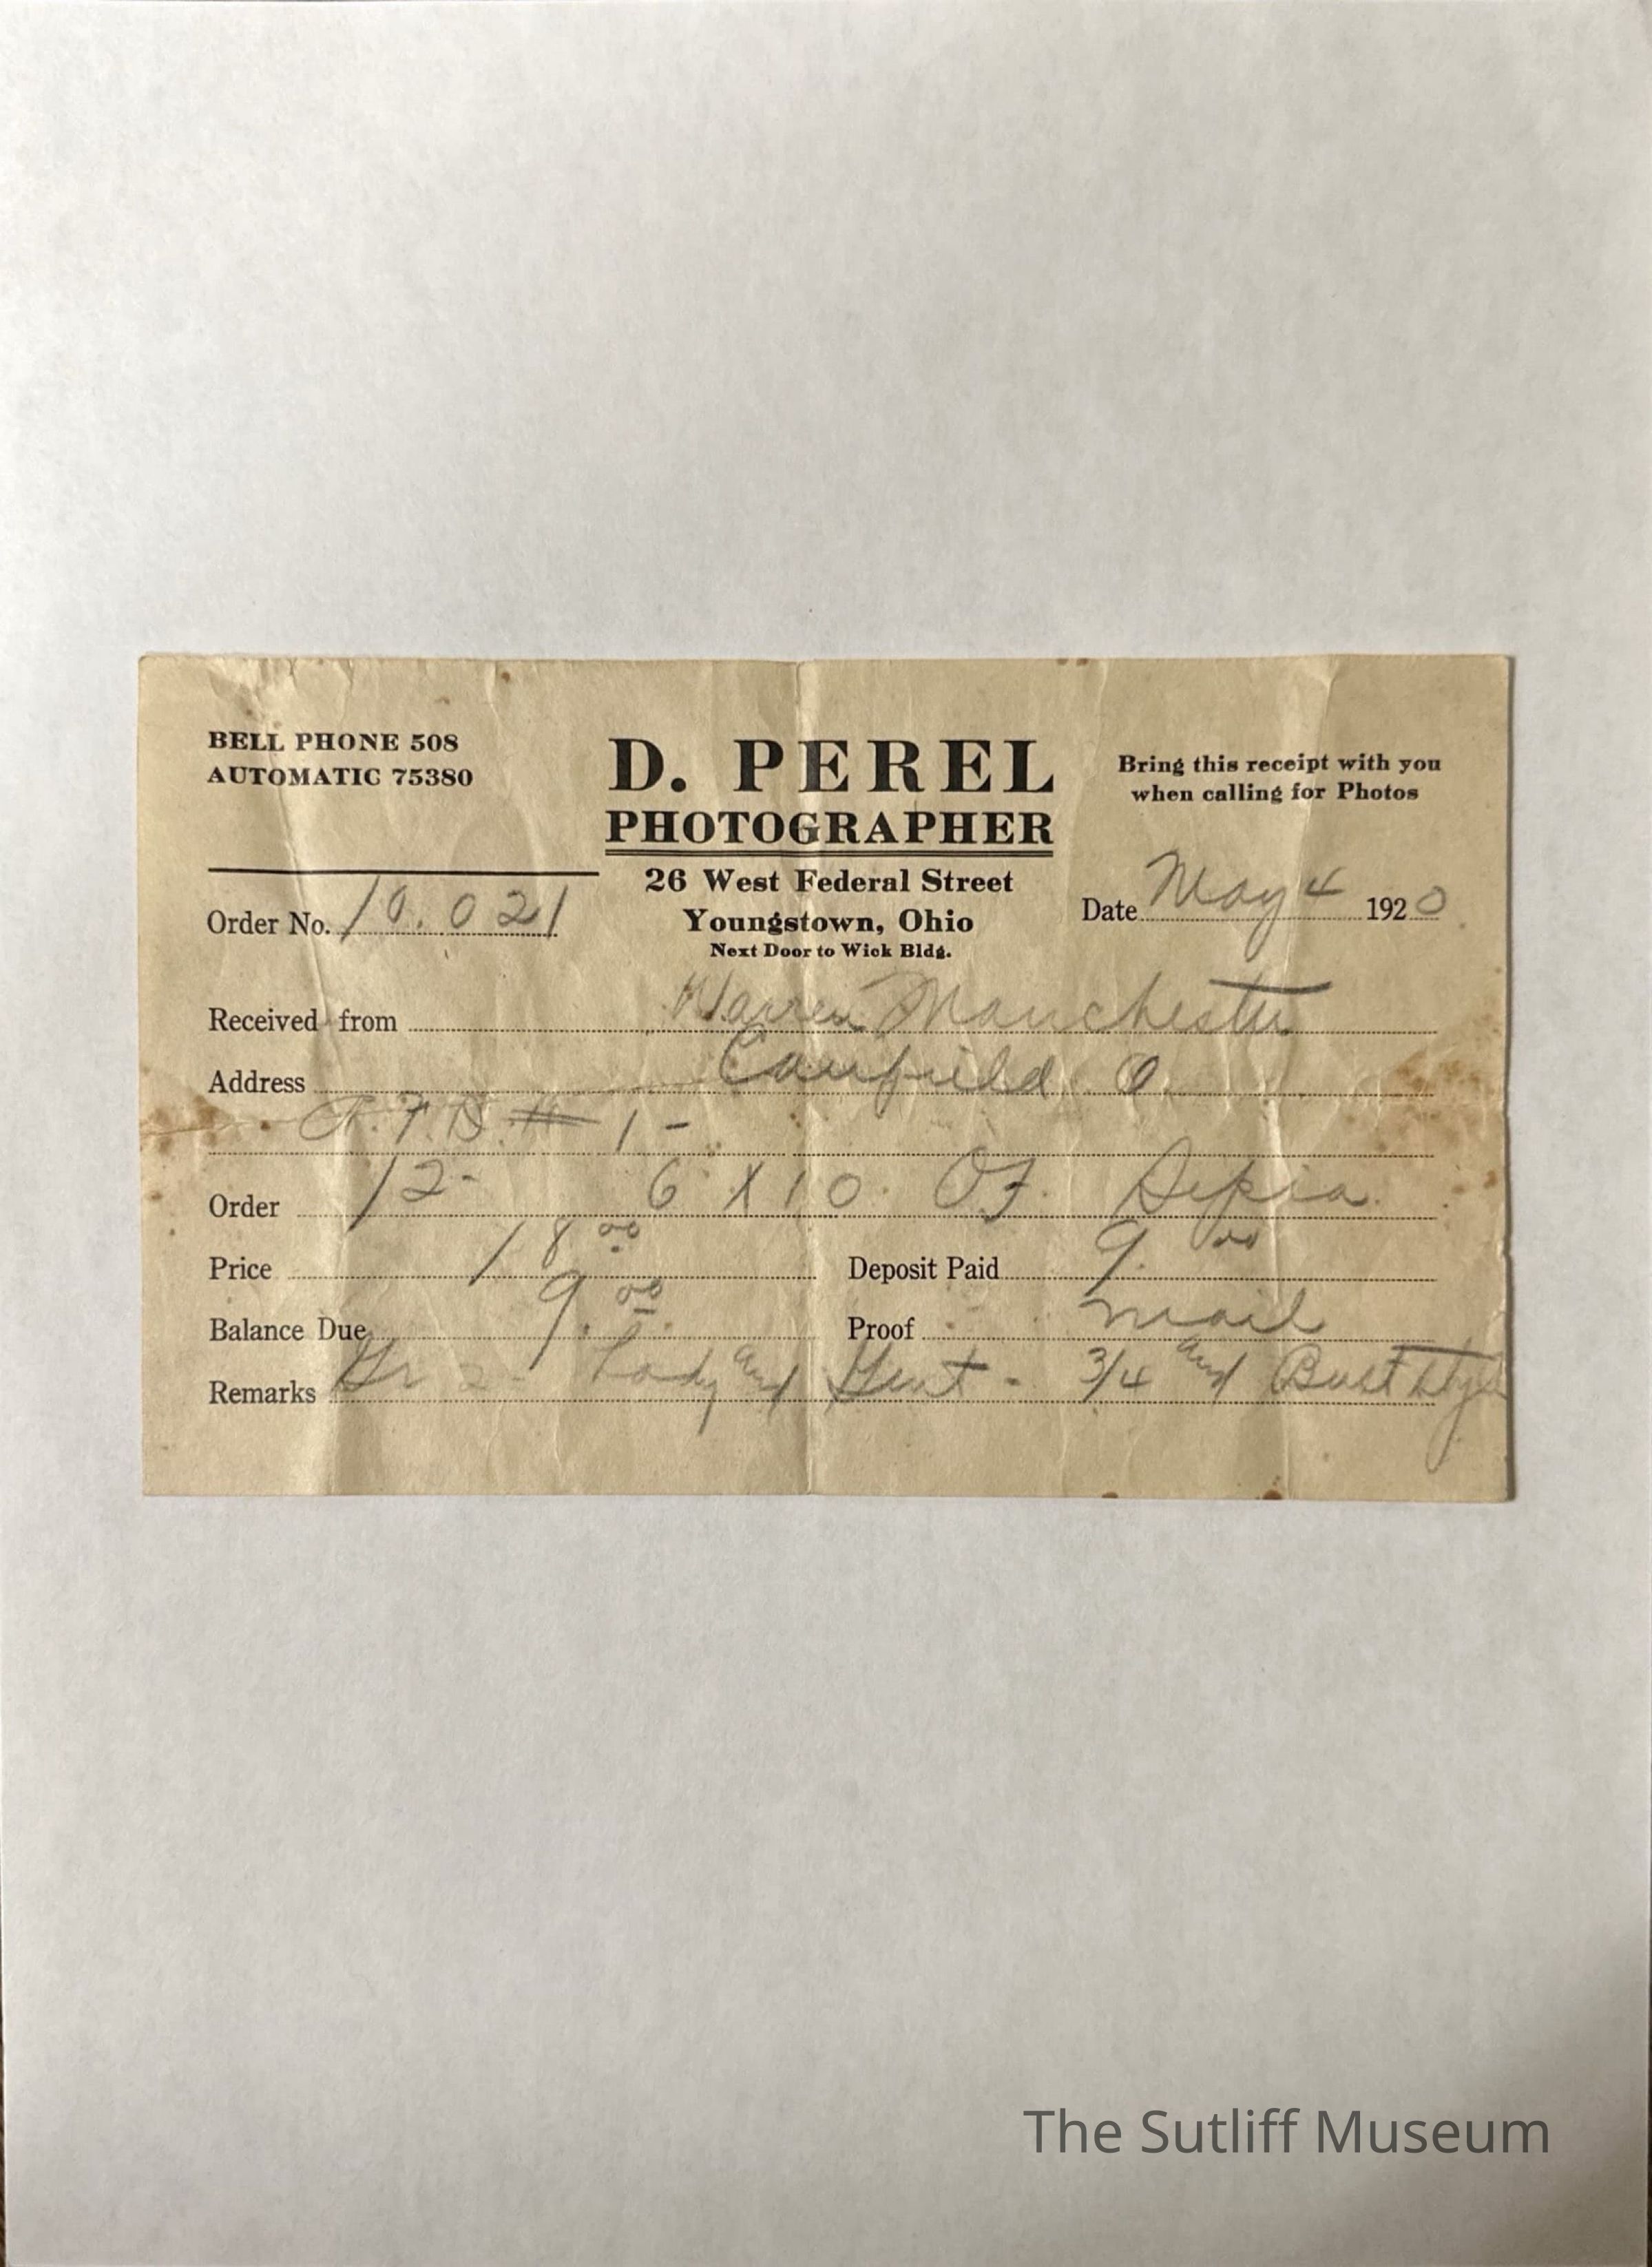 BELL PHONE 508
AUTOMATIC 75380
D. PEREL
PHOTOGRAPHER
26 West Federal Street
Youngstown, Ohio
Next Door to Wick Bldg.
Bring this receipt with you
when calling for Photos
Order No. 10.021
Date May 4 1920
Received from Warren Manchester
Address Canfield O.
R.F.D. # 1 -
Order 12- 6 X 10 Of Sepia.
Price 18.00 Deposit Paid 9.00
Balance Due 9.00 Proof mail
Remarks Gr 2- Lady and Gent - 3/4 and Bust Style
The Sutliff Museum